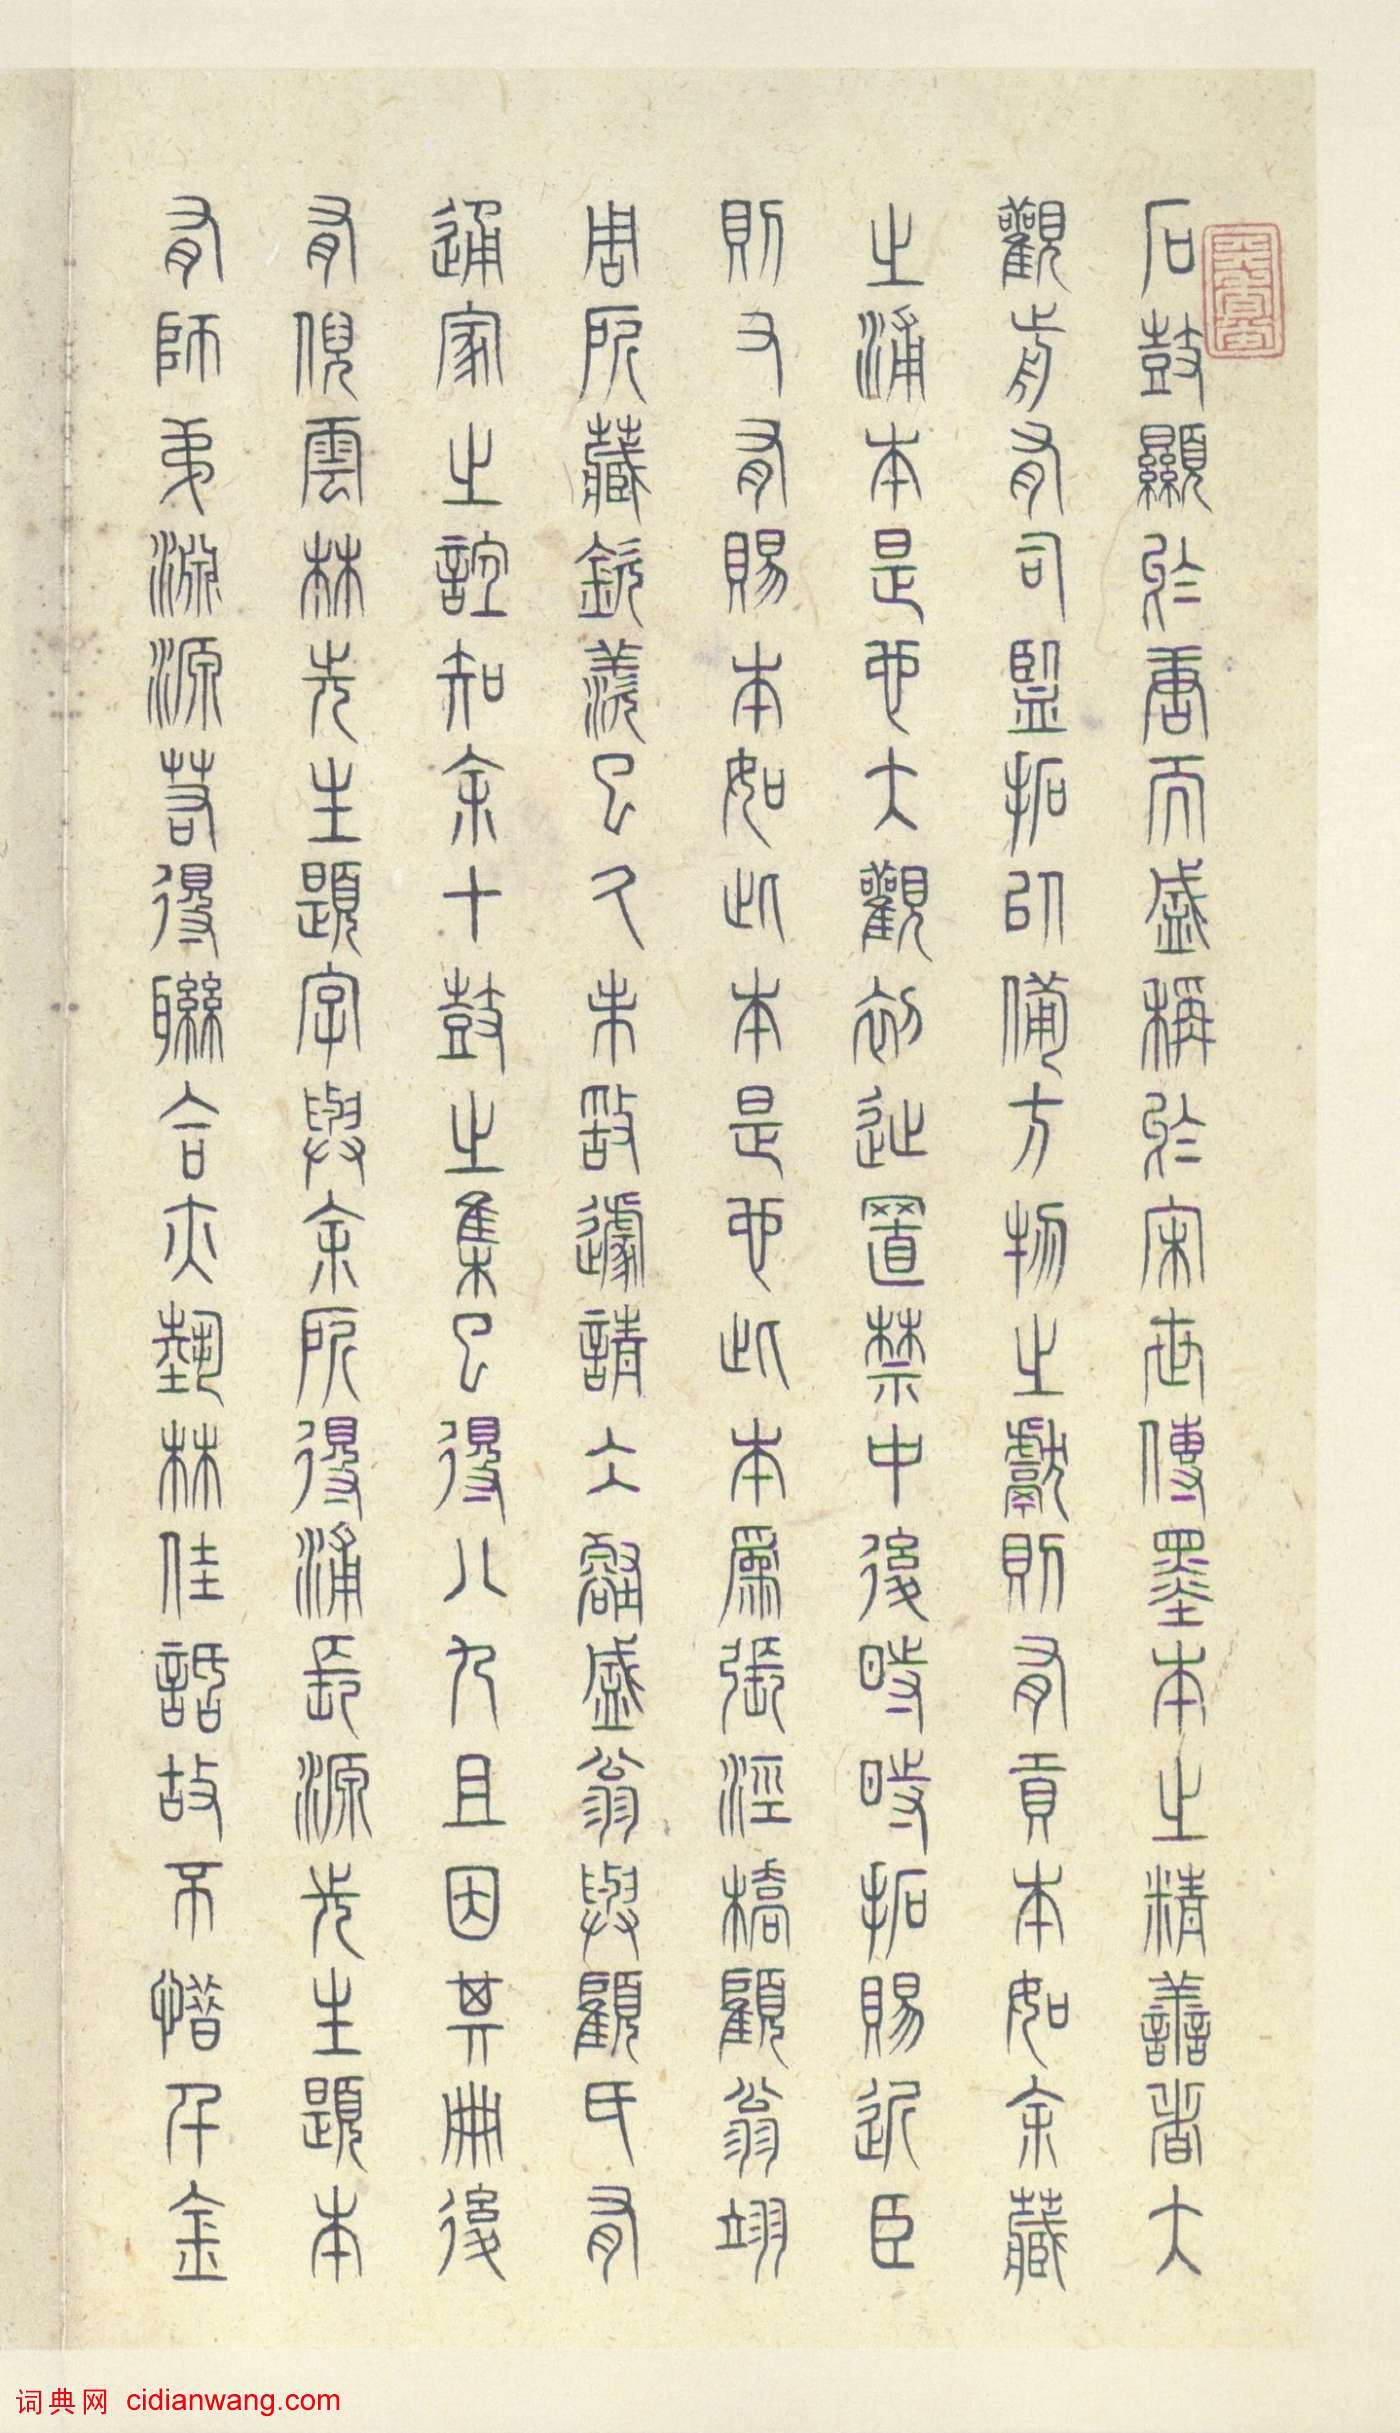 石鼓顯於唐而盛稱於宋世傳墨本之精善者大
觀前有司監拓以備方物之獻則有貢本如余藏
之浦本是也大觀初徙置禁中後時時拓賜近臣
則又有賜本如此本是也此本屬張涇橋顧翁翊
周所藏欽羨已久未敢遽請六盛翁與顧氏有
通家之誼知余十鼓之集已得八九且因其冊後
有倪雲林先生題字與余所得浦長源先生題本
有師弟淵源若得聯合亦藝林佳話故不惜千金
词典网 cidianwang.com